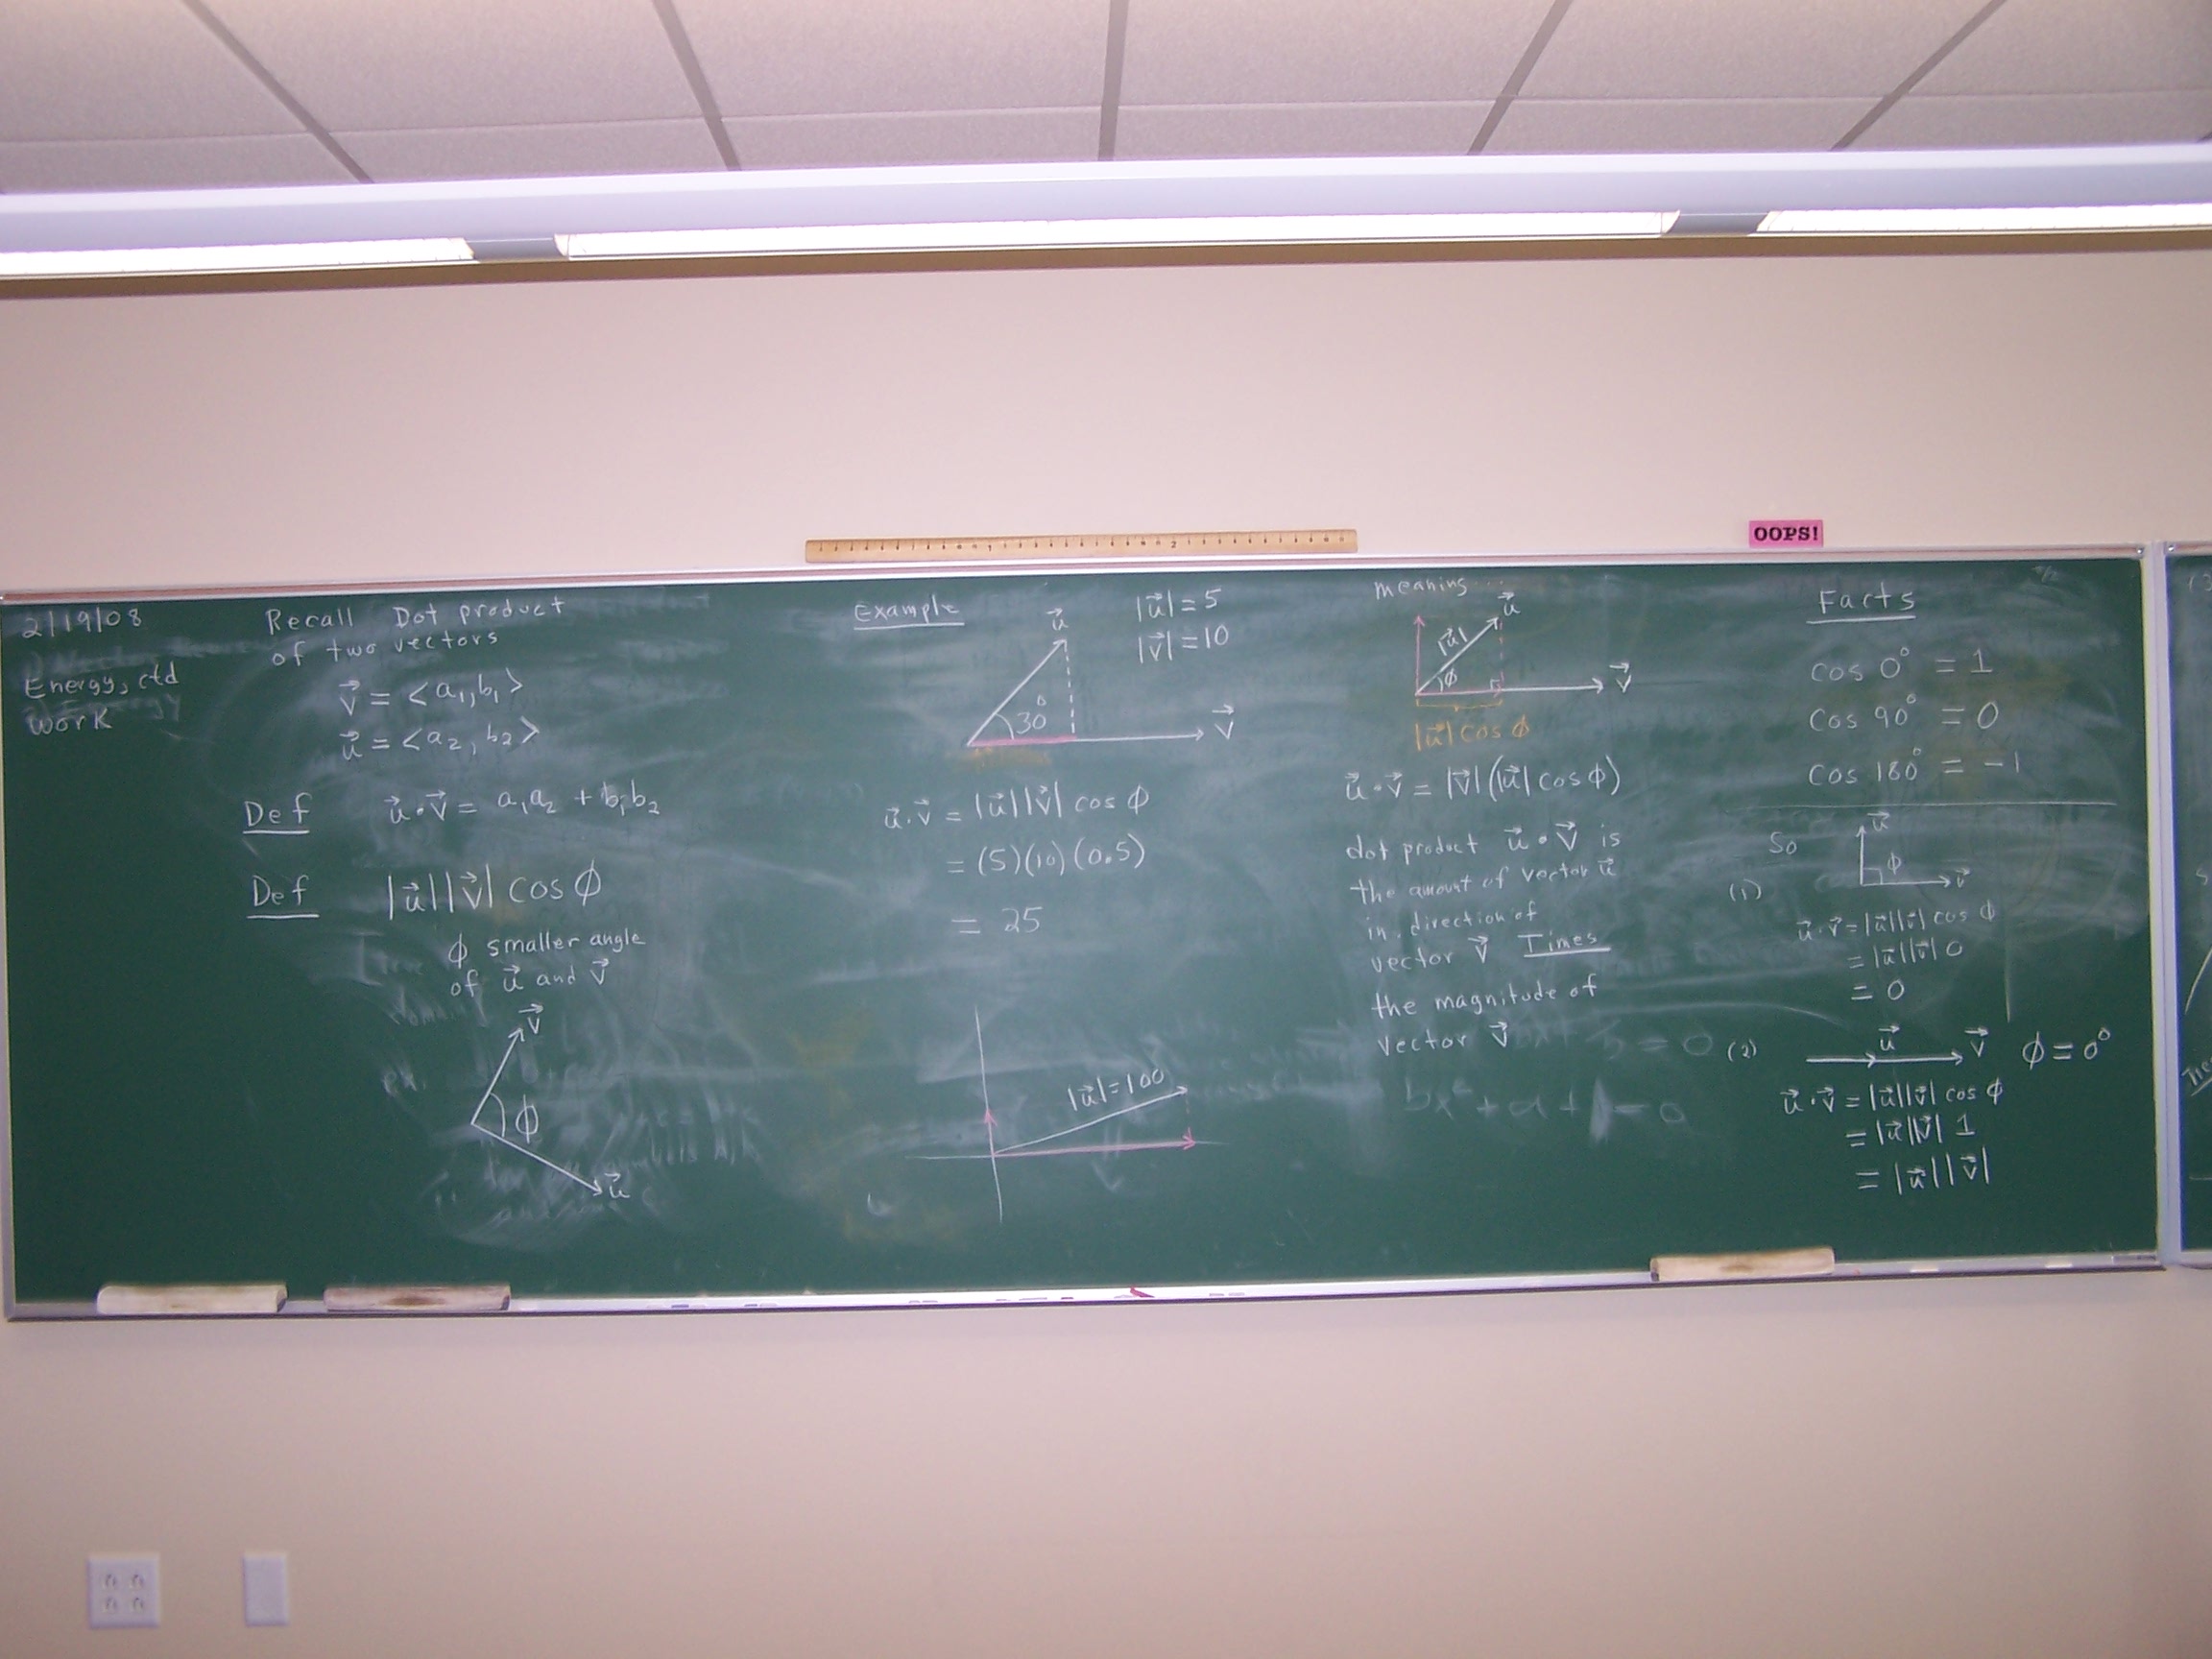 OOPS!
2/19/08
Energy, ctd
work
Recall Dot product
of two vectors
v⃗ = <a₁, b₁>
u⃗ = <a₂, b₂>
Def u⃗·v⃗ = a₁a₂ + b₁b₂
Def |u⃗||v⃗| cos ϕ
ϕ smaller angle
of u⃗ and v⃗
v⃗
ϕ
u⃗
Example
|u⃗| = 5
|v⃗| = 10
u⃗
30°
v⃗
u⃗·v⃗ = |u⃗||v⃗| cos ϕ
= (5)(10)(0.5)
= 25
|u⃗|=100
meaning
u⃗
|u⃗|
ϕ
v⃗
|u⃗| cos ϕ
u⃗·v⃗ = |v⃗|(|u⃗| cos ϕ)
dot product u⃗·v⃗ is
the amount of vector u⃗
in direction of
vector v⃗ Times
the magnitude of
vector v⃗
Facts
cos 0° = 1
cos 90° = 0
cos 180° = -1
So
(1)
u⃗
ϕ
v⃗
u⃗·v⃗ = |u⃗||v⃗| cos ϕ
= |u⃗||v⃗| 0
= 0
(2) u⃗ v⃗ ϕ = 0°
u⃗·v⃗ = |u⃗||v⃗| cos ϕ
= |u⃗||v⃗| 1
= |u⃗||v⃗|